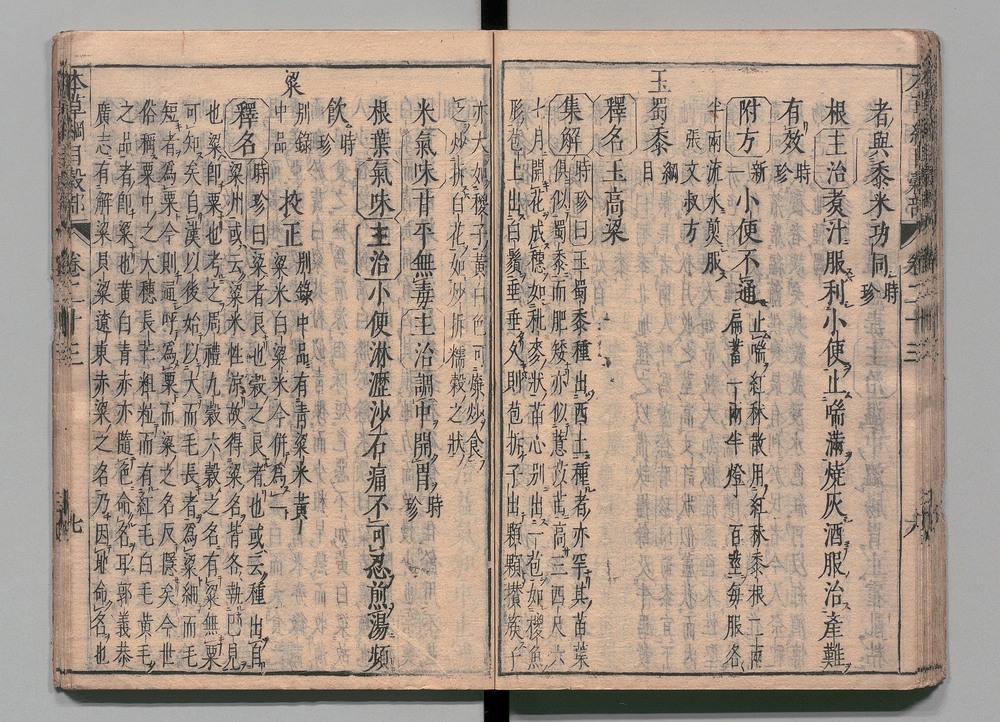 者與黍米功同時珍
根主治煮汁服利小便止喘滿燒灰酒服治產難
有效時珍
附方新一小便不通止喘紅秫散用紅秫黍根二兩
萹蓄一兩半燈心百莖每服各
半兩流水煎服
張文叔方
玉蜀黍綱目
釋名玉高粱
集解時珍曰玉蜀黍種出西土種者亦罕其苗葉
俱似蜀黍而肥矮亦似薏苡苗高三四尺六
七月開花成穗如秕麥狀苗心別出一苞如椶魚
形苞上出白鬚垂垂久則苞拆子出顆顆攢簇子
亦大如椶子黃白色可煠炒食
之炒拆白花如炒拆糯穀之狀
米氣味甘平無毒主治調中開胃時珍
根葉氣味主治小便淋瀝沙石痛不可忍煎湯頻
飲時珍
粱別錄中品校正別錄中品有青粱米黃
粱米白粱米今併為一
釋名時珍曰粱者良也穀之良者也或云種出自
粱州或云粱米性涼故得粱名皆各執己見
也粱即粟也考之周禮九穀六穀之名有粱無粟
可知矣自漢以後始以大而毛長者為粱細而毛
短者為粟今則通呼為粟而粱之名反隱矣今世
俗稱粟中之大穗長芒粗粒而有紅毛白毛黃毛
之品者即粱也黃白青赤亦隨色命名耳郭義恭
廣志有解粱貝粱遼東赤粱之名乃因地命名也
本草綱目穀部
卷二十三
七
卷二十三
六